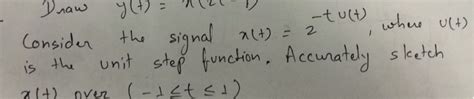 Draw y(t) = x(2(-1)
Consider the signal x(t) = 2^{-t u(t)}, where u(t)
is the unit step function. Accurately sketch
x(t) over (-1 ≤ t ≤ 1)